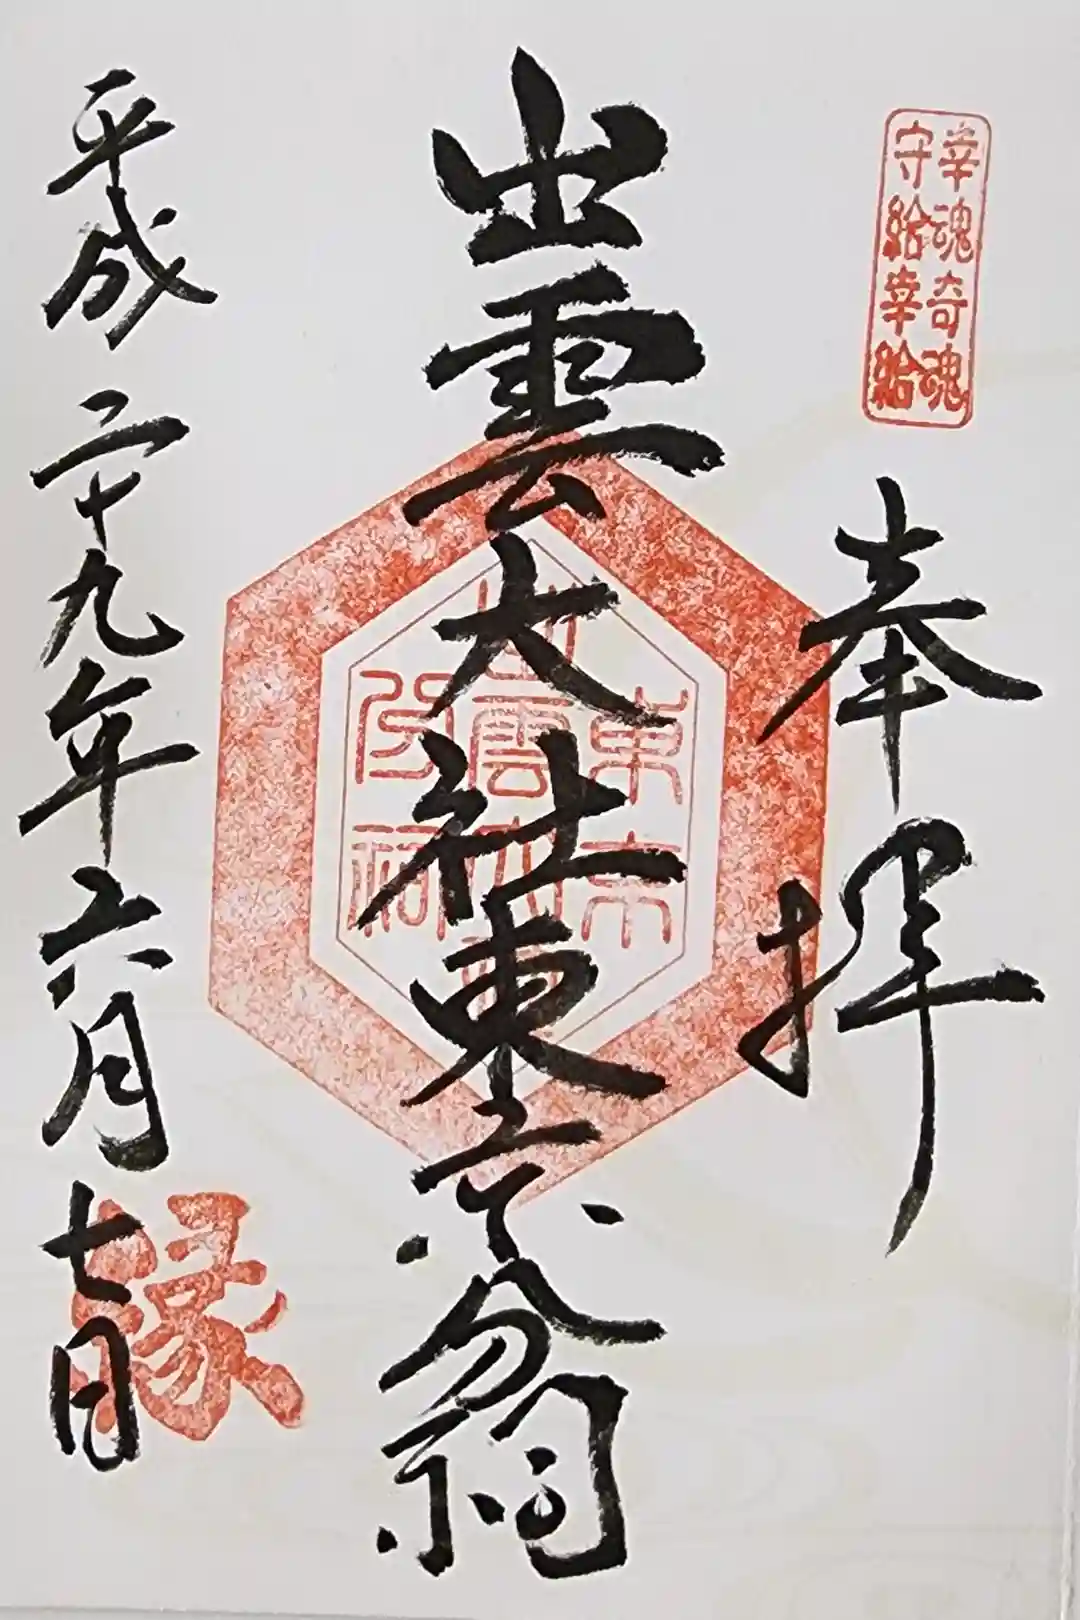 幸魂奇魂
守給幸給
奉拝
出雲大社東京分祠
東京
出雲大社
分祠
平成二十九年六月七日
縁